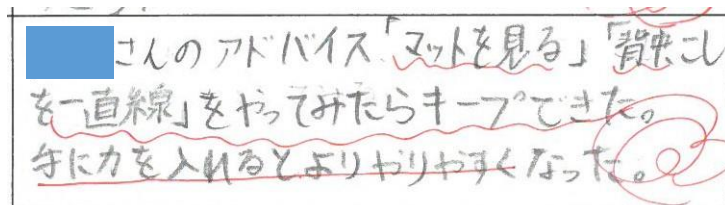 さんのアドバイス「マットを見る」「背中こし
を一直線」をやってみたらキープできた。
手に力を入れるとよりやりやすくなった。